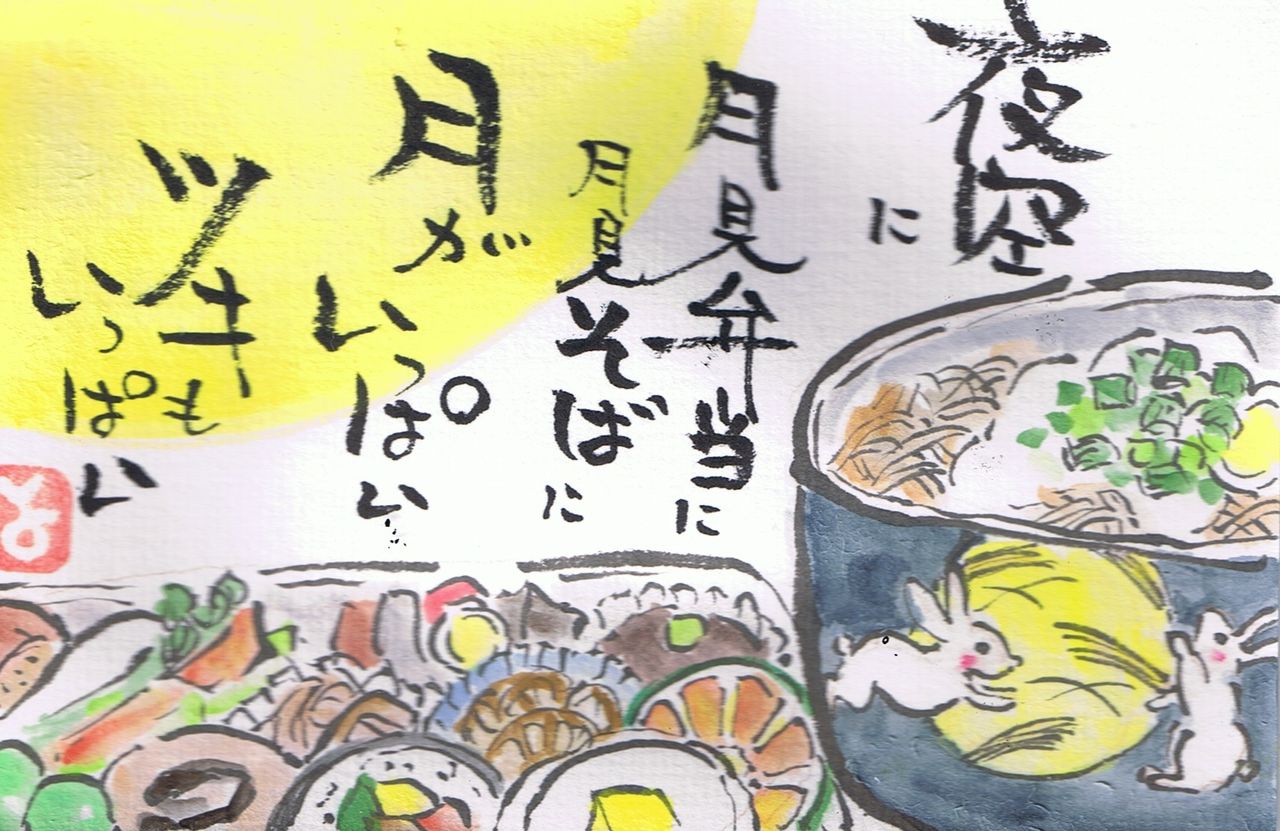 夜空に
月見弁当に
月見そばに
月が
いっぱい
ツキも
いっぱい
よ